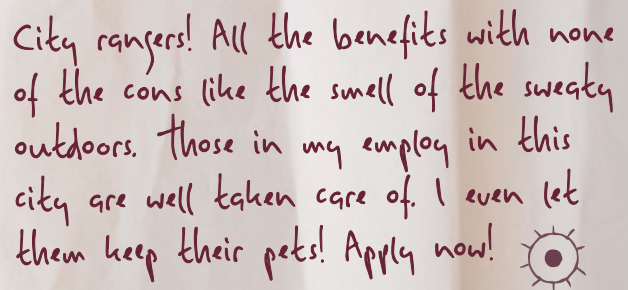 City rangers! All the benefits with none
of the cons like the smell of the sweaty
outdoors. Those in my employ in this
city are well taken care of. I even let
them keep their pets! Apply now!